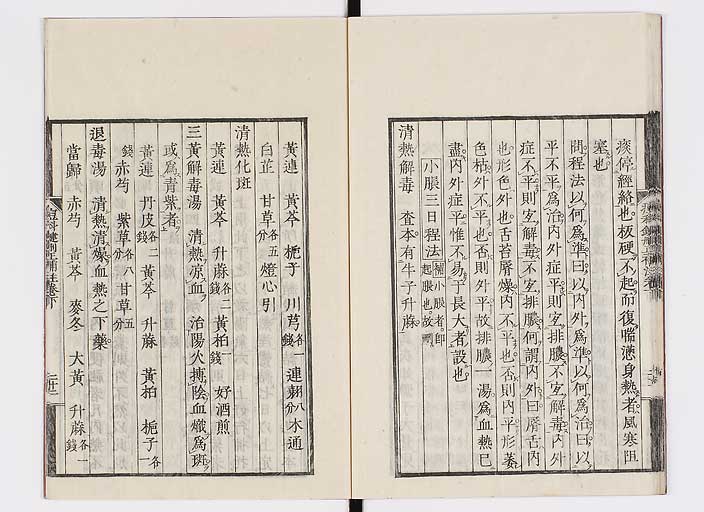 痰停經絡也板硬不起而復喘滿身熱者風寒阻
塞也
問程法以何爲準曰以內外爲準以何爲治曰以
平不平爲治內外症平則宜排膿不宜解毒內外
症不平則宜解毒不宜排膿何謂內外曰唇舌內
也形色外也舌苔唇燥內不平也否則內平形萎
色枯外不平也否則外平故排膿一湯爲血熱已
盡內外症平惟不易于長大者設也
小脹三日程法 補小脹者即起脹也故
清熱解毒 查本有牛子升蔴
黃連 黃芩 梔子 川芎各一錢 連翹八分 木通
白芷 甘草各五分 燈心引
清熱化斑
黃連 黃芩 升蔴各二錢 黃柏一錢 好酒煎
三黃解毒湯 清熱涼血 治陽火搏陰血熾爲斑
或爲青紫者
黃連 丹皮各二錢 黃芩 升蔴 黃柏 梔子各一
錢 赤芍 紫草各八分 甘草五分
退毒湯 清熱清燥血熱之下藥
當歸 赤芍 黃芩 麥冬 大黃 升蔴各一錢